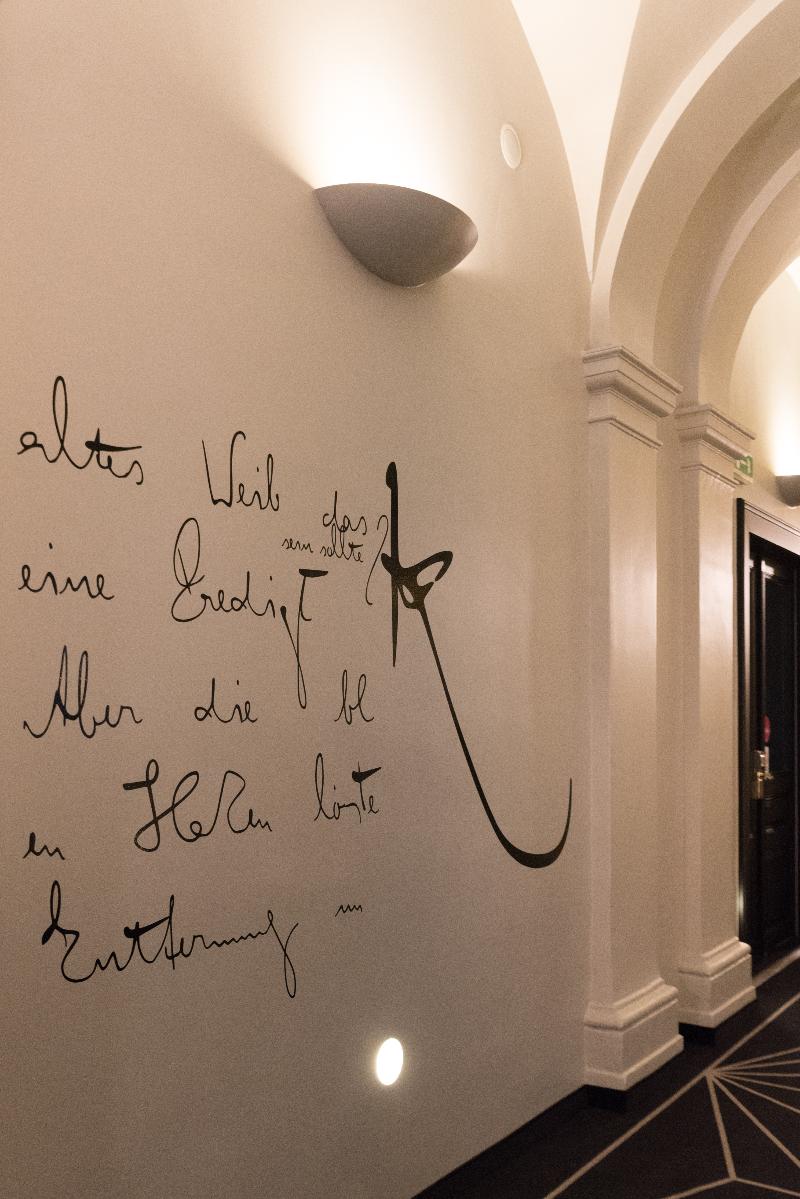 altes Weib das
sein sollte
eine Predigt
Aber die bl
en Herzen löste
Entfernung